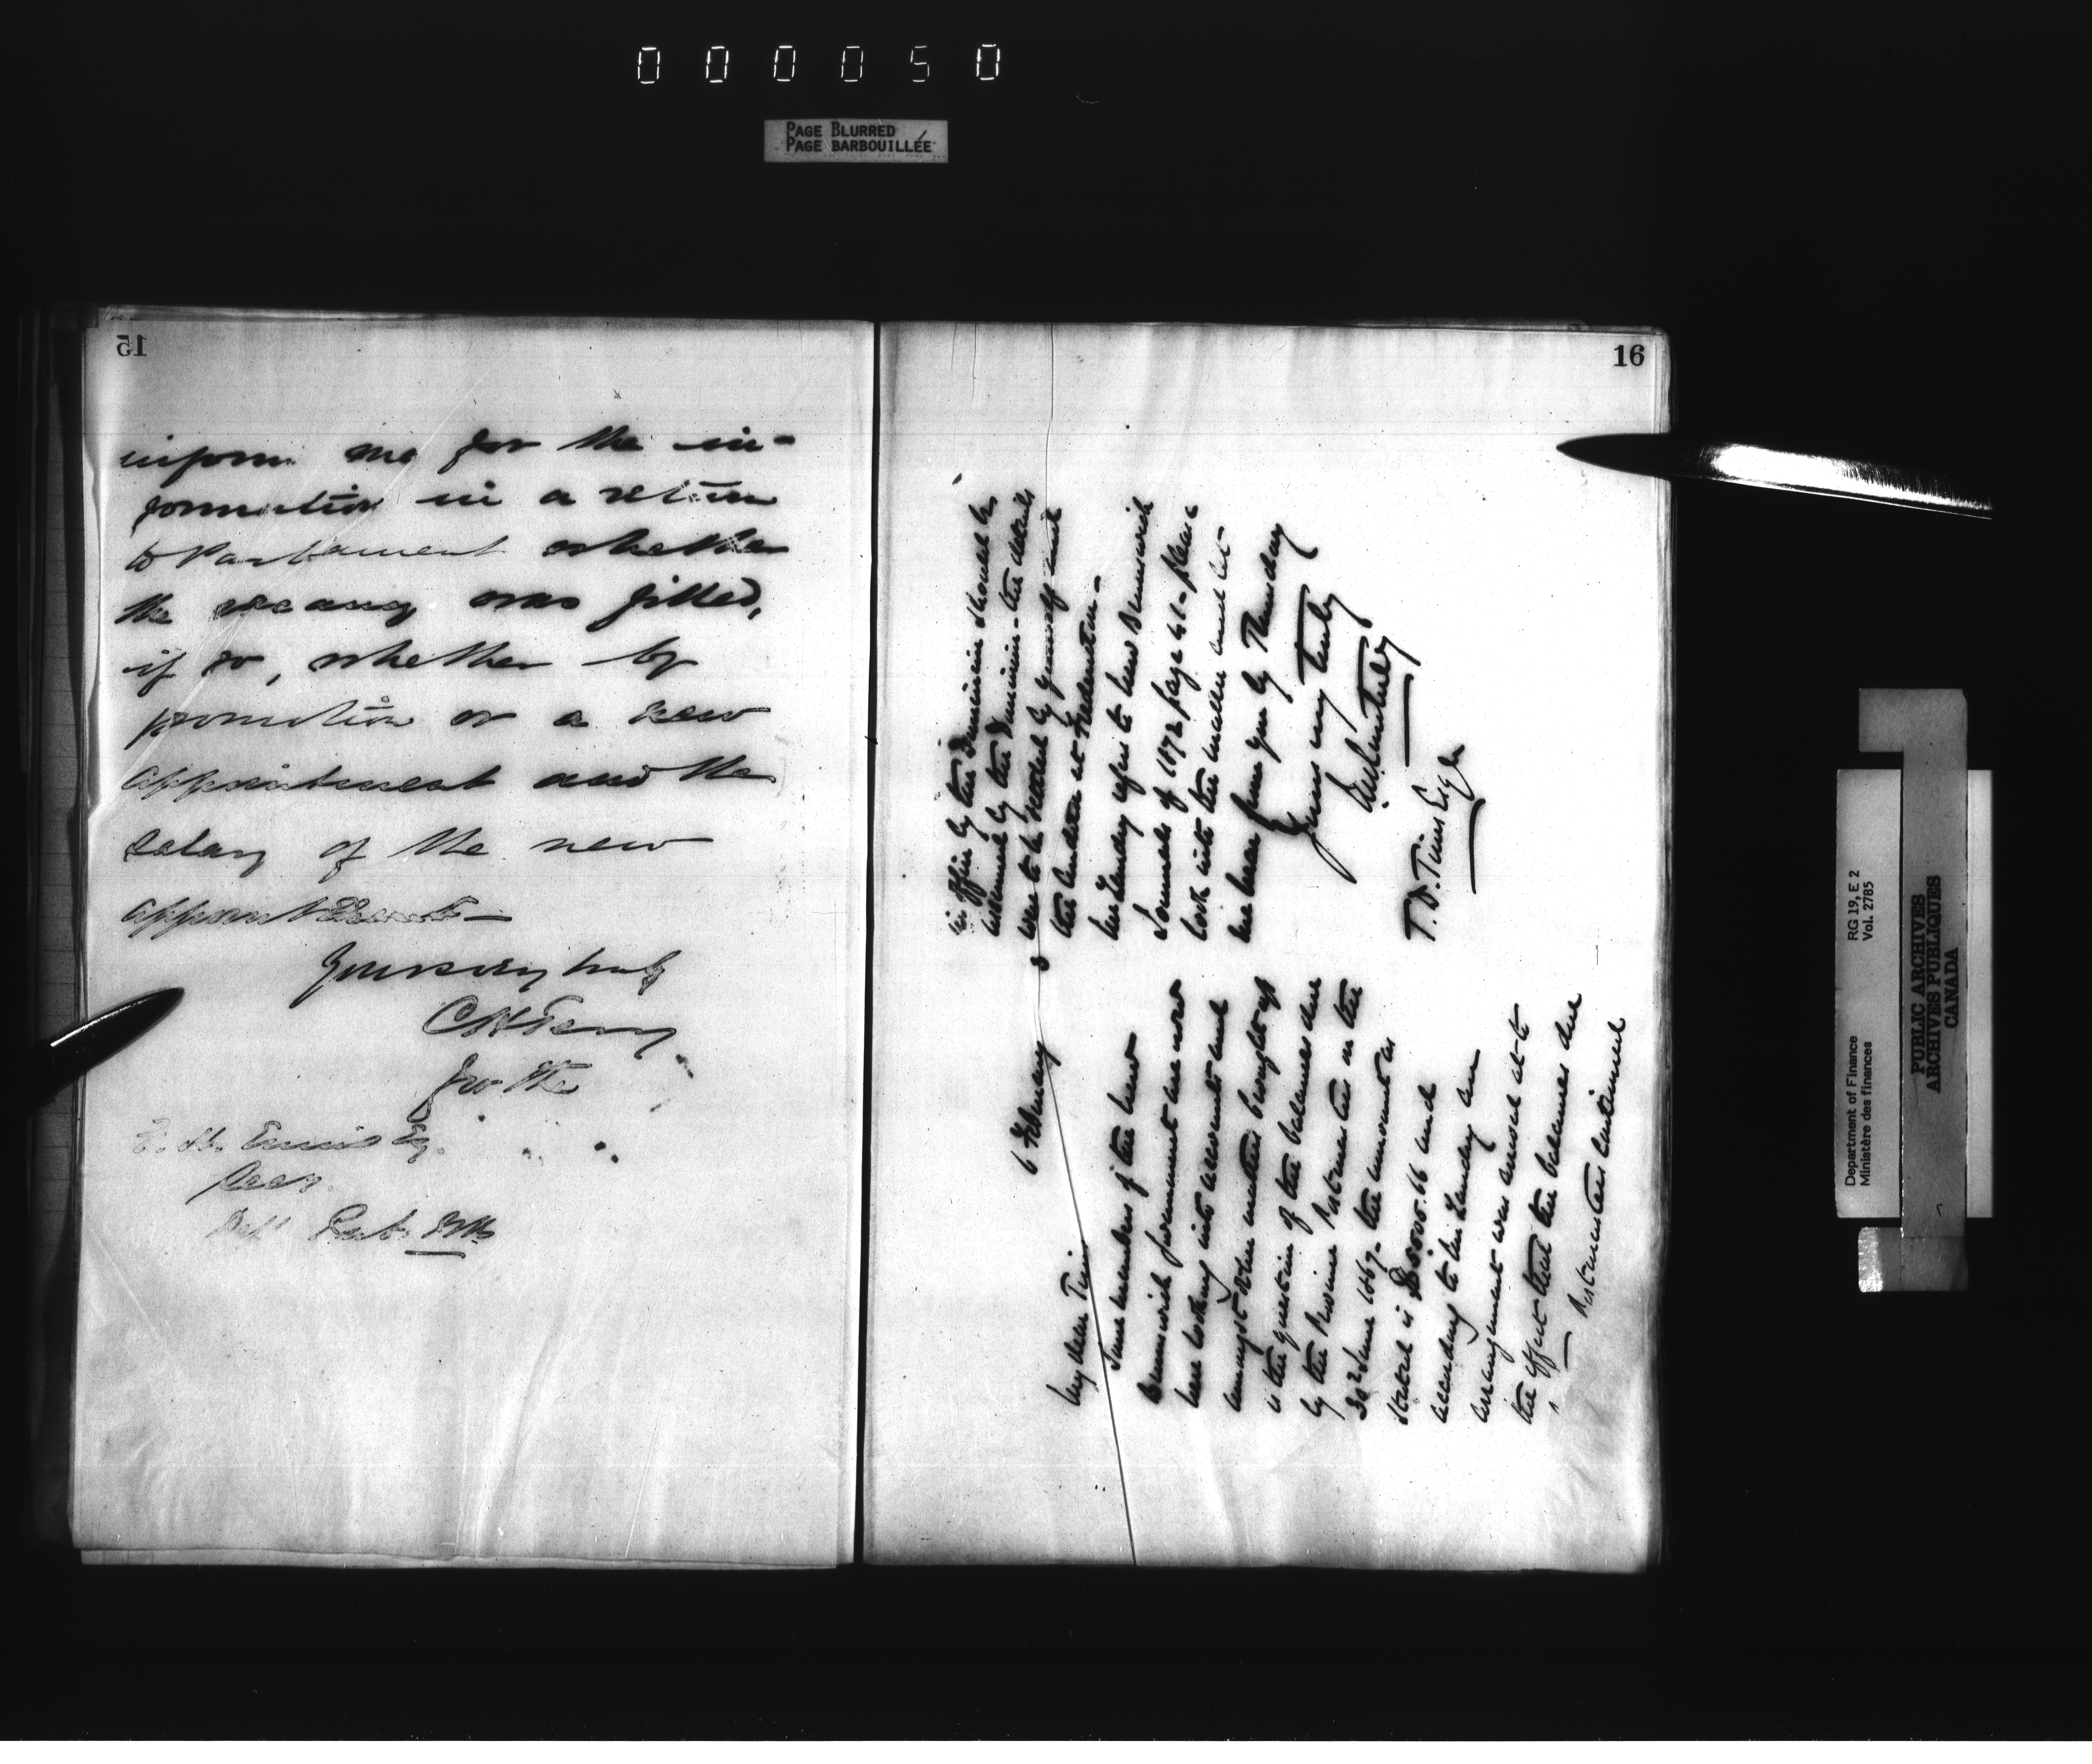 000050
PAGE BLURRED
PAGE BARBOUILLÉE
15
inform me for the in-
formation in a return
to Parliament whether
the vacancy was filled,
if so, whether by
promotion or a new
appointment and the
salary of the new
Yours very truly
for the
Esq.
16
6 February
My dear Timms
Some members of the New
Brunswick Government are now
here looking into accounts and
amongst other matters brought up
is the question of the balances due
by the Province Postmasters on the
30th June 1867 - the amount as
stated is $5000.66 and
according to Mr Landry an
arrangement was arrived at to
the effect that the balances due
Postmasters continued
in office by the Dominion should be
assumed by the Dominion - the details
were to be settled by yourself and
the Auditor at Fredericton -
Mr Landry refers to New Brunswick
Journals of 1872 page 41 - please
look into the matter and let
me hear from you by Thursday
Yours very truly
T.D. Timms Esqr
Department of Finance
Ministère des finances
RG 19, E 2
Vol. 2785
PUBLIC ARCHIVES
ARCHIVES PUBLIQUES
CANADA